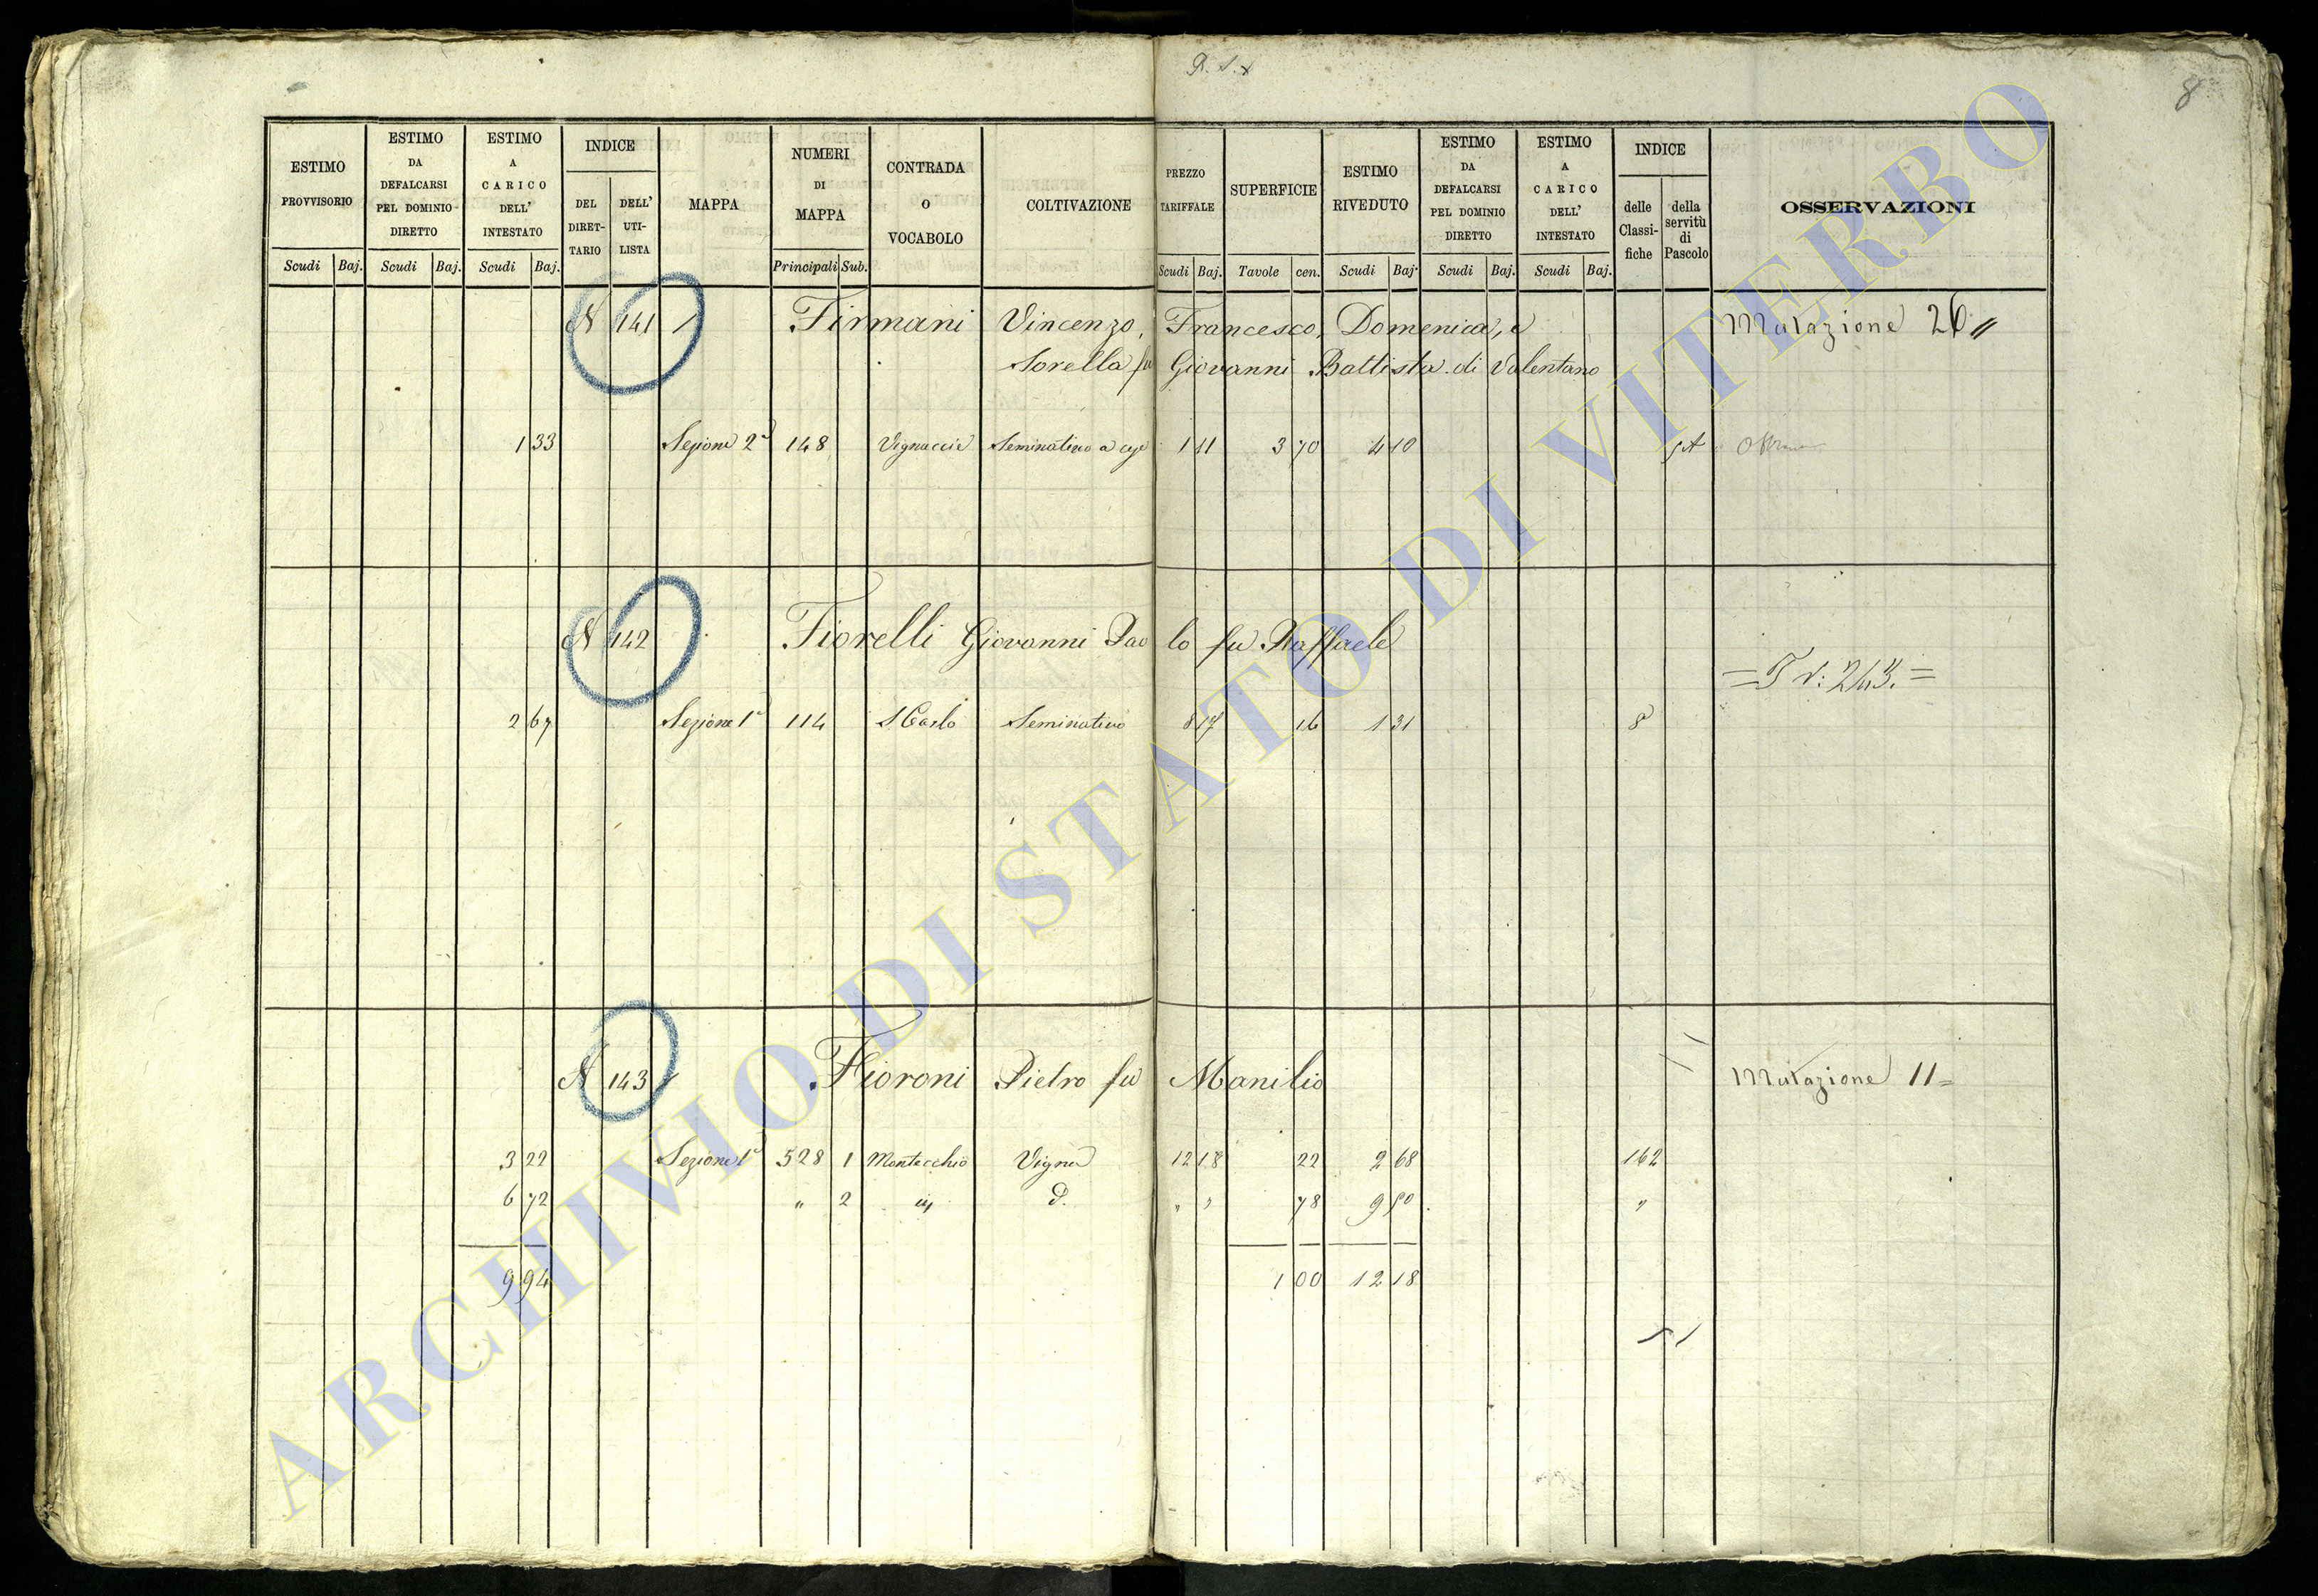 8
ESTIMO PROVVISORIO
ESTIMO DA DEFALCARSI PEL DOMINIO DIRETTO
ESTIMO A CARICO DELL' INTESTATO
INDICE
DEL DIRET-TARIO
DELL' UTI-LISTA
MAPPA
NUMERI DI MAPPA
CONTRADA O VOCABOLO
COLTIVAZIONE
PREZZO TARIFFALE
SUPERFICIE
ESTIMO RIVEDUTO
ESTIMO DA DEFALCARSI PEL DOMINIO DIRETTO
ESTIMO A CARICO DELL' INTESTATO
INDICE
delle Classi-fiche
della servitù di Pascolo
OSSERVAZIONI
Scudi Baj. Scudi Baj. Scudi Baj. Principali Sub. Scudi Baj. Tavole cen. Scudi Baj. Scudi Baj. Scudi Baj.
N 141 Firmani Vincenzo, Francesco, Domenica, e Mutazione 26
Sorella fu Giovanni Battista di Valentano
1 33 Sezione 2a 148 Vignaccie Seminativo a 1 11 3 70 4 10
N 142 Fiorelli Giovanni Paolo fu Raffaele
= 243. =
2 67 Sezione 1a 114 S Carlo Seminativo 8 17 16 1 31 8
N 143 Fioroni Pietro fu Manilio Mutazione 11=
3 22 Sezione 1a 528 1 Montecchio Vigna 12 18 22 2 68 162
6 72 " 2 " " 78 9 50 "
9 94 1 00 12 18
ARCHIVIO DI STATO DI VITERBO